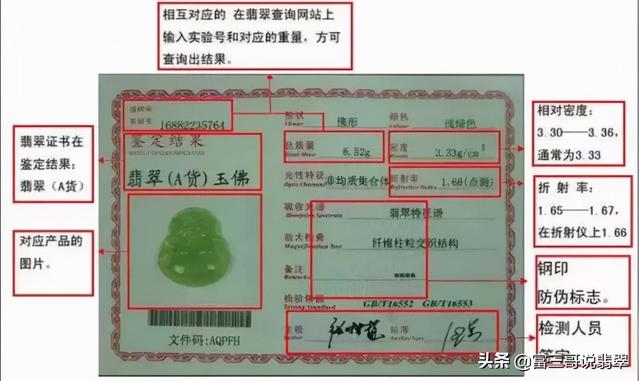 相互对应的 在翡翠查询网站上
输入实验号和对应的重量，方可
查询出结果。
翡翠证书在
鉴定结果：
翡翠（A货）
对应产品的
图片。
16882235764
鉴定结果
翡翠(A货)玉佛
文件码:AQPFH
形状
佛形
颜色
浅绿色
总质量
6.52g
密度
3.33g/cm³
光性特征
非均质集合体
折射率
1.66(点测)
吸收光谱
翡翠特征谱
放大检查
纤维柱粒交织结构
备注
检验依据
GB/T16552 GB/T16553
主检
相对密度：
3.30——3.36，
通常为3.33
折 射 率：
1.65——1.67，
在折射仪上1.66
钢印
防伪标志。
检测人员
签字
头条 @富三哥说翡翠